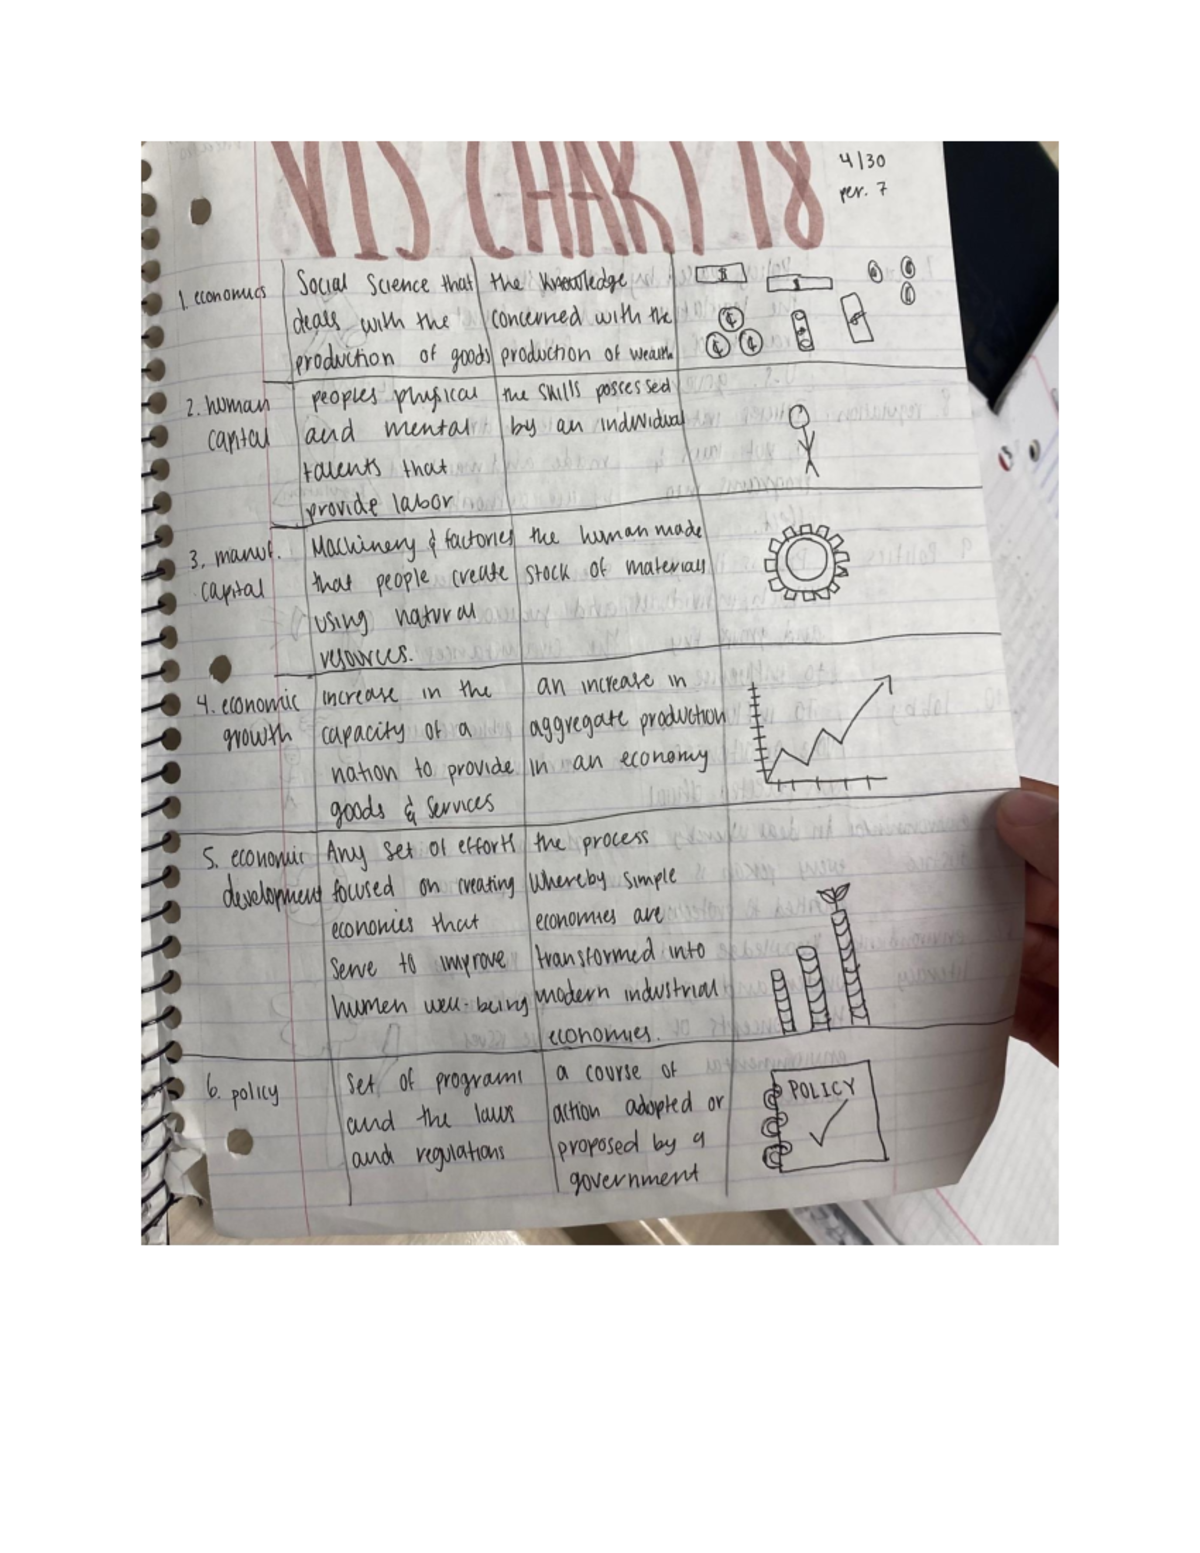 VIS CHART 18
4/30
per. 7
1. economics
Social Science that
deals with the
production of goods
the knowledge
concerned with the
production of wealth
2. human
capital
peoples physical
and mental
talents that
provide labor
the skills possessed
by an individual
3. manuf.
capital
Machinery & factories
that people create
using natural
resources.
the human made
stock of materials
4. economic
growth
increase in the
capacity of a
nation to provide
goods & services
an increase in
aggregate production
in an economy
5. economic
development
Any set of efforts
focused on creating
economies that
serve to improve
human well-being
the process
whereby simple
economies are
transformed into
modern industrial
economies.
6. policy
set of programs
and the laws
and regulations
a course of
action adopted or
proposed by a
government
POLICY